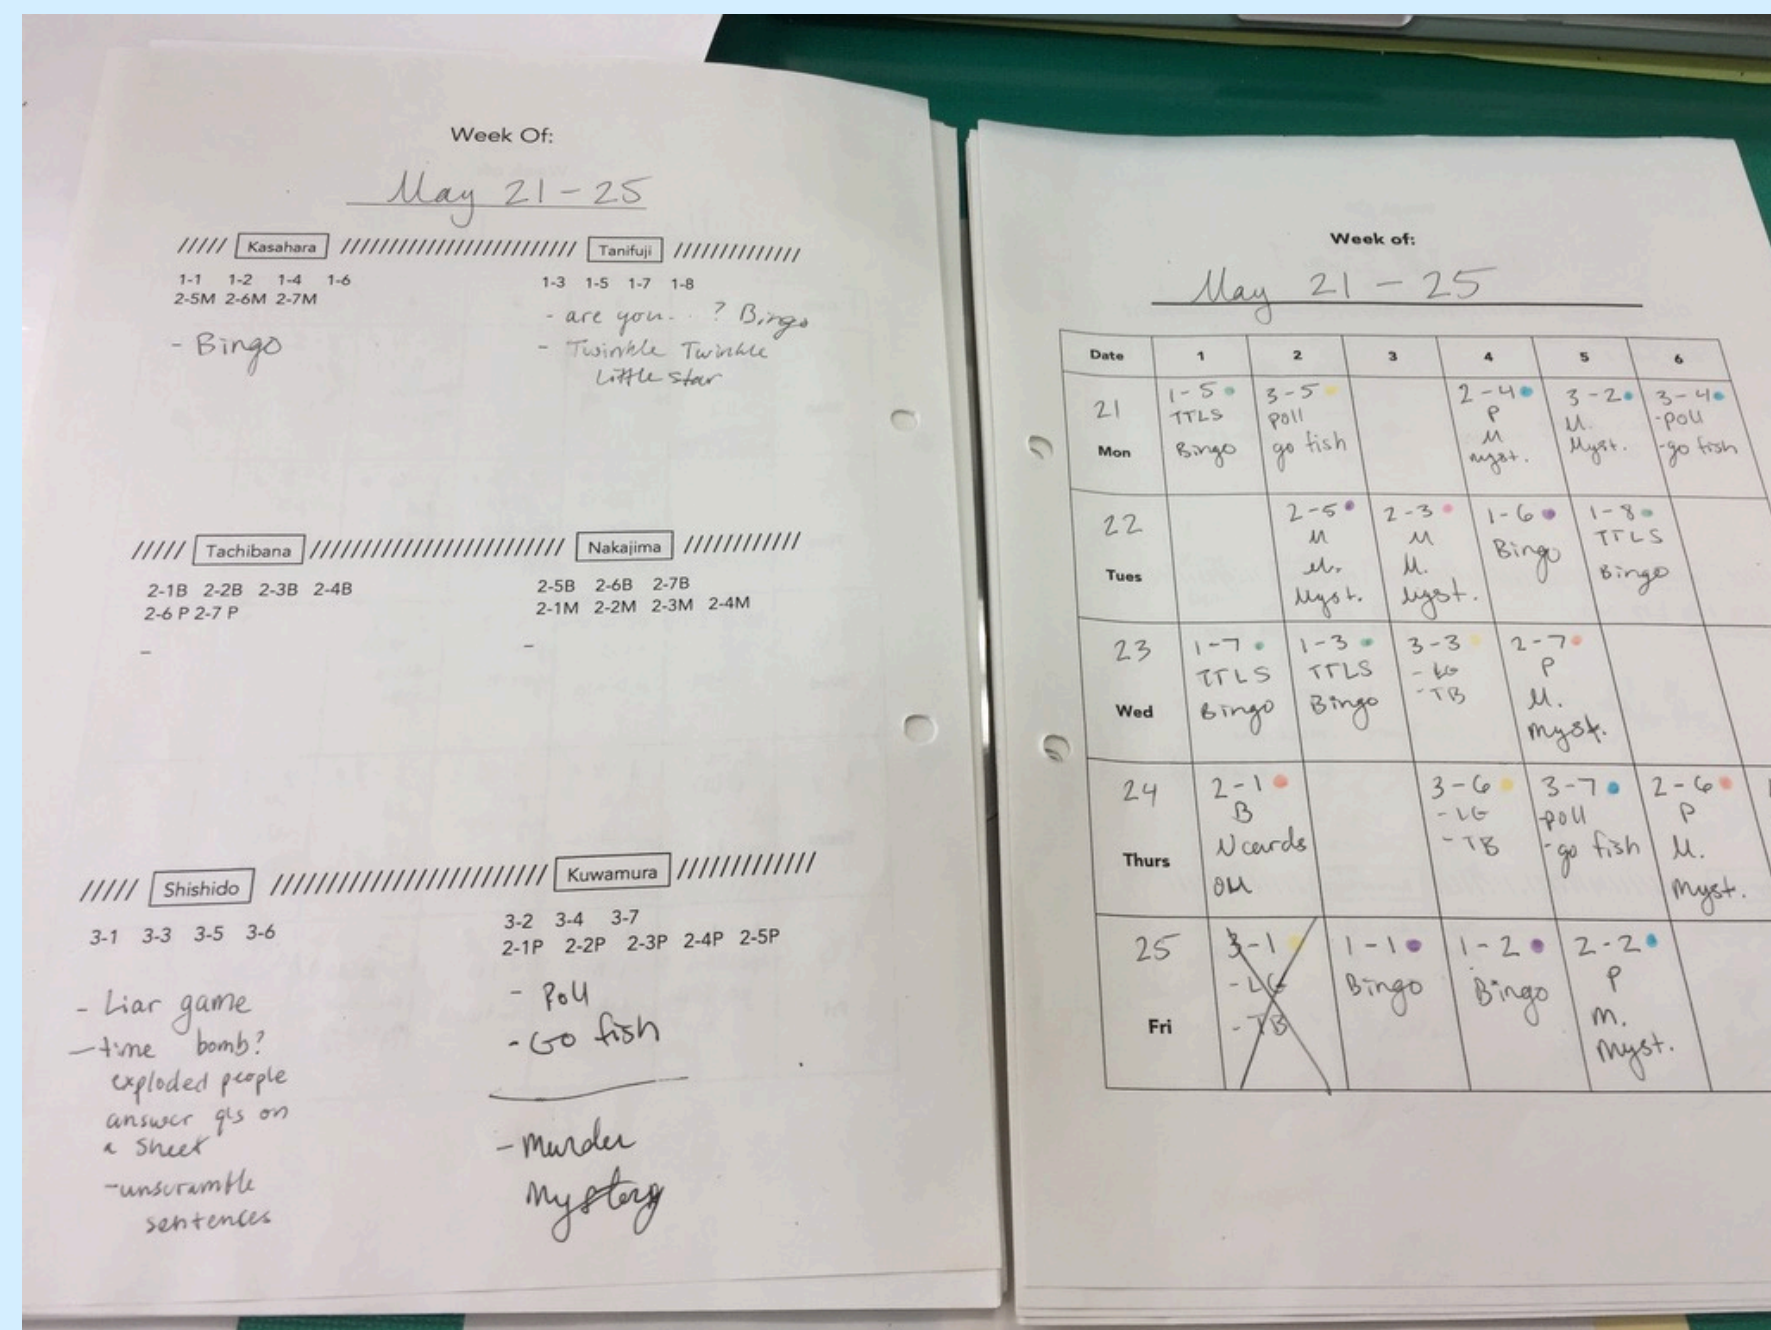 Week Of:
May 21-25
Kasahara
1-1 1-2 1-4 1-6
2-5M 2-6M 2-7M
- Bingo
Tanifuji
1-3 1-5 1-7 1-8
- are you...? Bingo
- Twinkle Twinkle
Little star
Tachibana
2-1B 2-2B 2-3B 2-4B
2-6 P 2-7 P
-
Nakajima
2-5B 2-6B 2-7B
2-1M 2-2M 2-3M 2-4M
-
Shishido
3-1 3-3 3-5 3-6
- Liar game
- time bomb?
exploded people
answer qs on
a sheet
- unscramble
sentences
Kuwamura
3-2 3-4 3-7
2-1P 2-2P 2-3P 2-4P 2-5P
- Poll
- Go fish
- Murder
Mystery
Week of:
May 21-25
Date 1 2 3 4 5 6
21
Mon
1-5
TTLS
Bingo
3-5
poll
go fish
2-4
P
M
myst.
3-2
M.
Myst.
3-4
-poll
-go fish
22
Tues
2-5
M
M.
Myst.
2-3
M
M.
Myst.
1-6
Bingo
1-8
TTLS
Bingo
23
Wed
1-7
TTLS
Bingo
1-3
TTLS
Bingo
3-3
- LG
- TB
2-7
P
M.
myst.
24
Thurs
2-1
B
N cards
OM
3-6
- LG
- TB
3-7
-poll
- go fish
2-6
P
M.
Myst.
25
Fri
3-1
- LG
- TB
1-1
Bingo
1-2
Bingo
2-2
P
m.
myst.